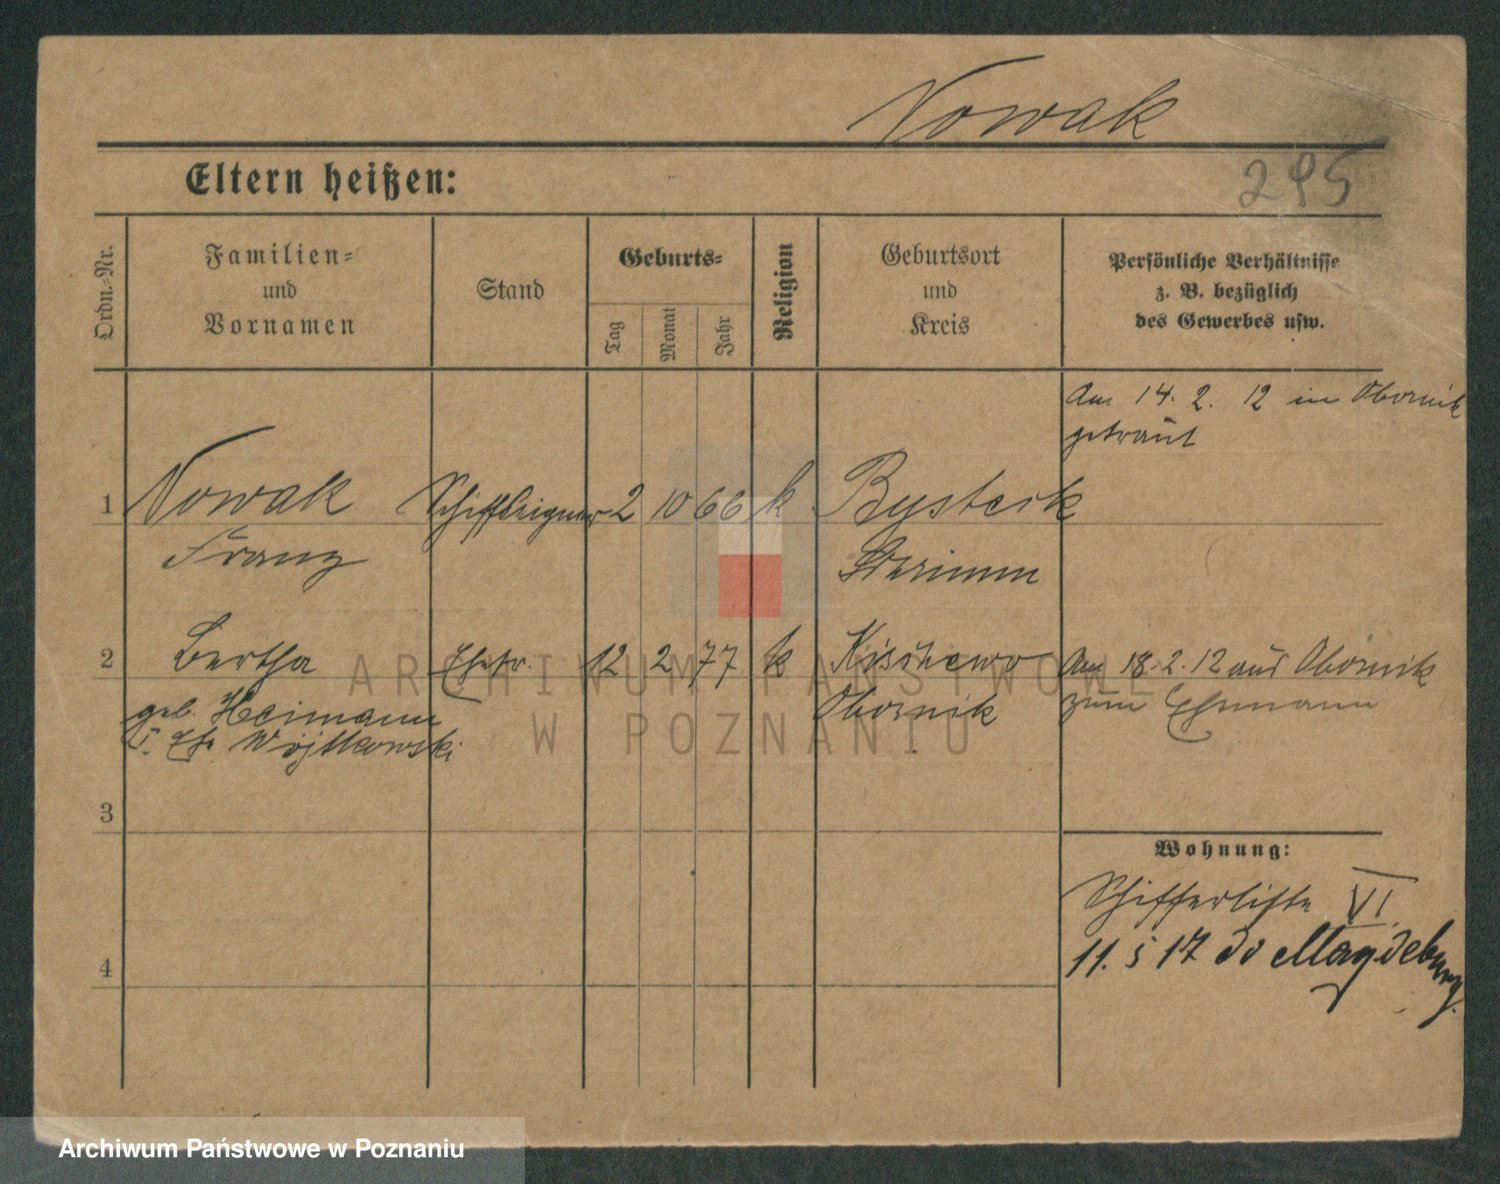 Nowak
295
Eltern heißen:
Ordn.-Nr.
Familien-
und
Vornamen
Stand
Geburts-
Tag
Monat
Jahr
Religion
Geburtsort
und
Kreis
Persönliche Verhältnisse
z. B. bezüglich
des Gewerbes usw.
Am 14. 2. 12 in Obornik
getraut
1 Nowak Schiffseigner 2 10 66 k
Franz Schrimm
2 Bertha Ehefr. 12 2 77 k Kischewo Am 18.2.12 aus Obornik
geb. Heimann Obornik zum Ehemann
I. Ehe Wojtkowski
3
Wohnung:
Schifferliste VI
11. 5 17 do Magdeburg.
4
ARCHIWUM PAŃSTWOWE
W POZNANIU
Archiwum Państwowe w Poznaniu